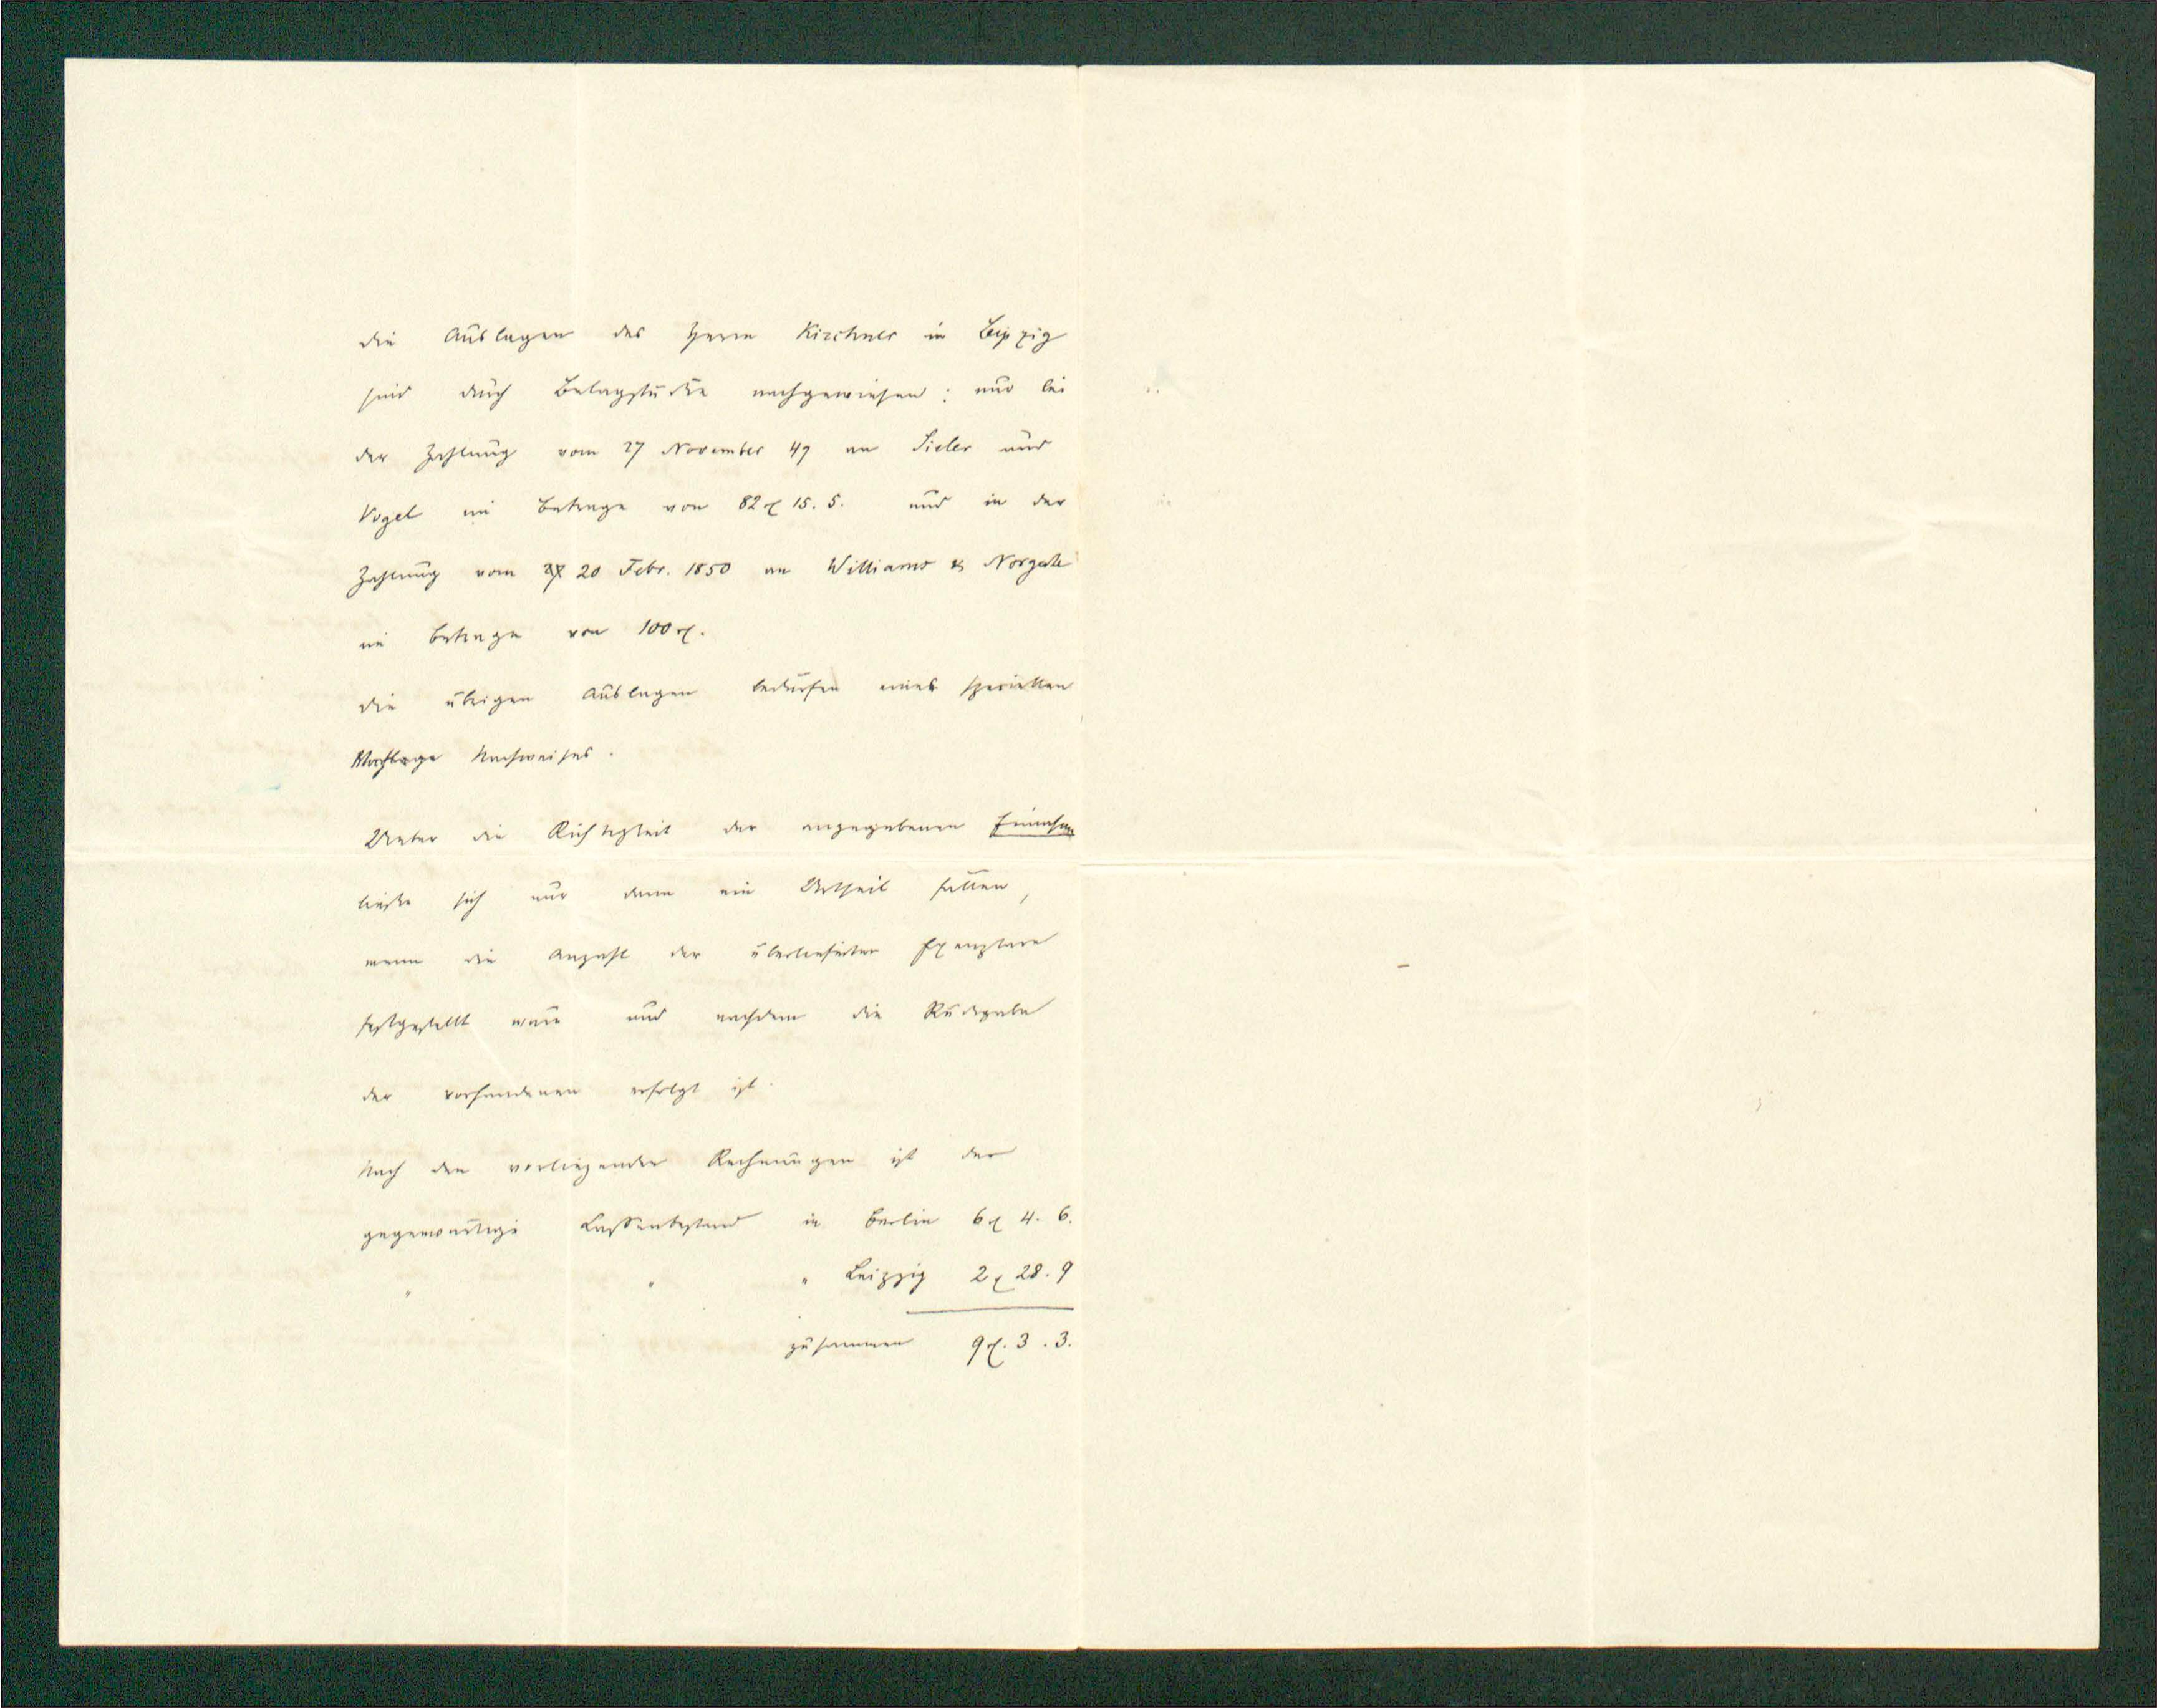 die Auslagen des Herrn Kirchner in Leipzig
sind durch Belagstücke nachgewiesen; nur bei
der Zahlung vom 27 November 49 an Sieler und
Vogel im Betrage von 82 ₰ 15. 5. und in der
Zahlung vom 20 Febr. 1850 an Williams & Norgate
im Betrage von 100 ₰.
die übrigen Auslagen bedürfen eines speciellen
Nachweises.
Ueber die Richtigkeit der angegebenen Einnahmen
ließe sich nur dann ein Urtheil fällen,
wenn die Anzahl der überlieferten Exemplare
festgestellt wäre und nachdem die Rückgabe
der vorhandenen erfolgt ist.
Nach den vorliegenden Rechnungen ist der
gegenwärtige Cassenbestand in Berlin 6 ₰ 4. 6.
" " " Leipzig 2 ₰ 28. 9
zusammen 9 ₰. 3. 3.